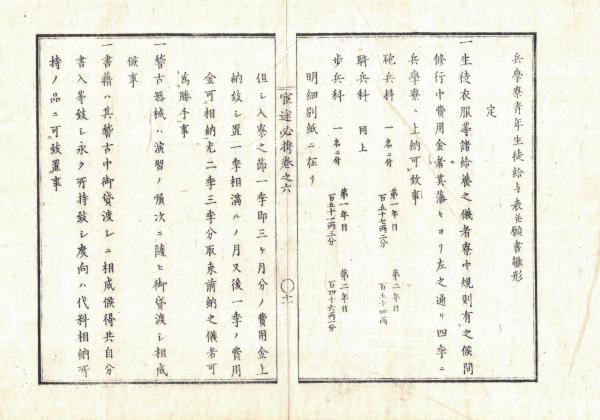 兵學寮青年生徒給与表並願書雛形
定
一生徒衣服等諸給養之儀者寮中規則有之候間
修行中費用金者其藩々ヨリ左之通リ四季ニ
兵學寮ニ上納可致事
砲兵科 一名ニ付 第一年目 百五十七両二分 第二年目 百五十四両
騎兵科 同上
歩兵科 一名ニ付 第一年目 百五十一両三分 第二年目 百四十六両一分
明細別紙ニ在リ
宦途必携巻之六
十一
但シ入寮之節一季即三ヶ月分ノ費用金上
納致シ置一季相満ルノ月又後一季ノ費用
金可相納尤二季三季分取束前納之儀者可
為勝手事
一稽古器械ハ演習ノ順次ニ随ヒ御貸渡シ相成
候事
一書籍ハ其稽古中御貸渡シニ相成候得共自分
書入等致シ永々所持致シ度向ハ代料相納可
持ノ品ニ可致置事